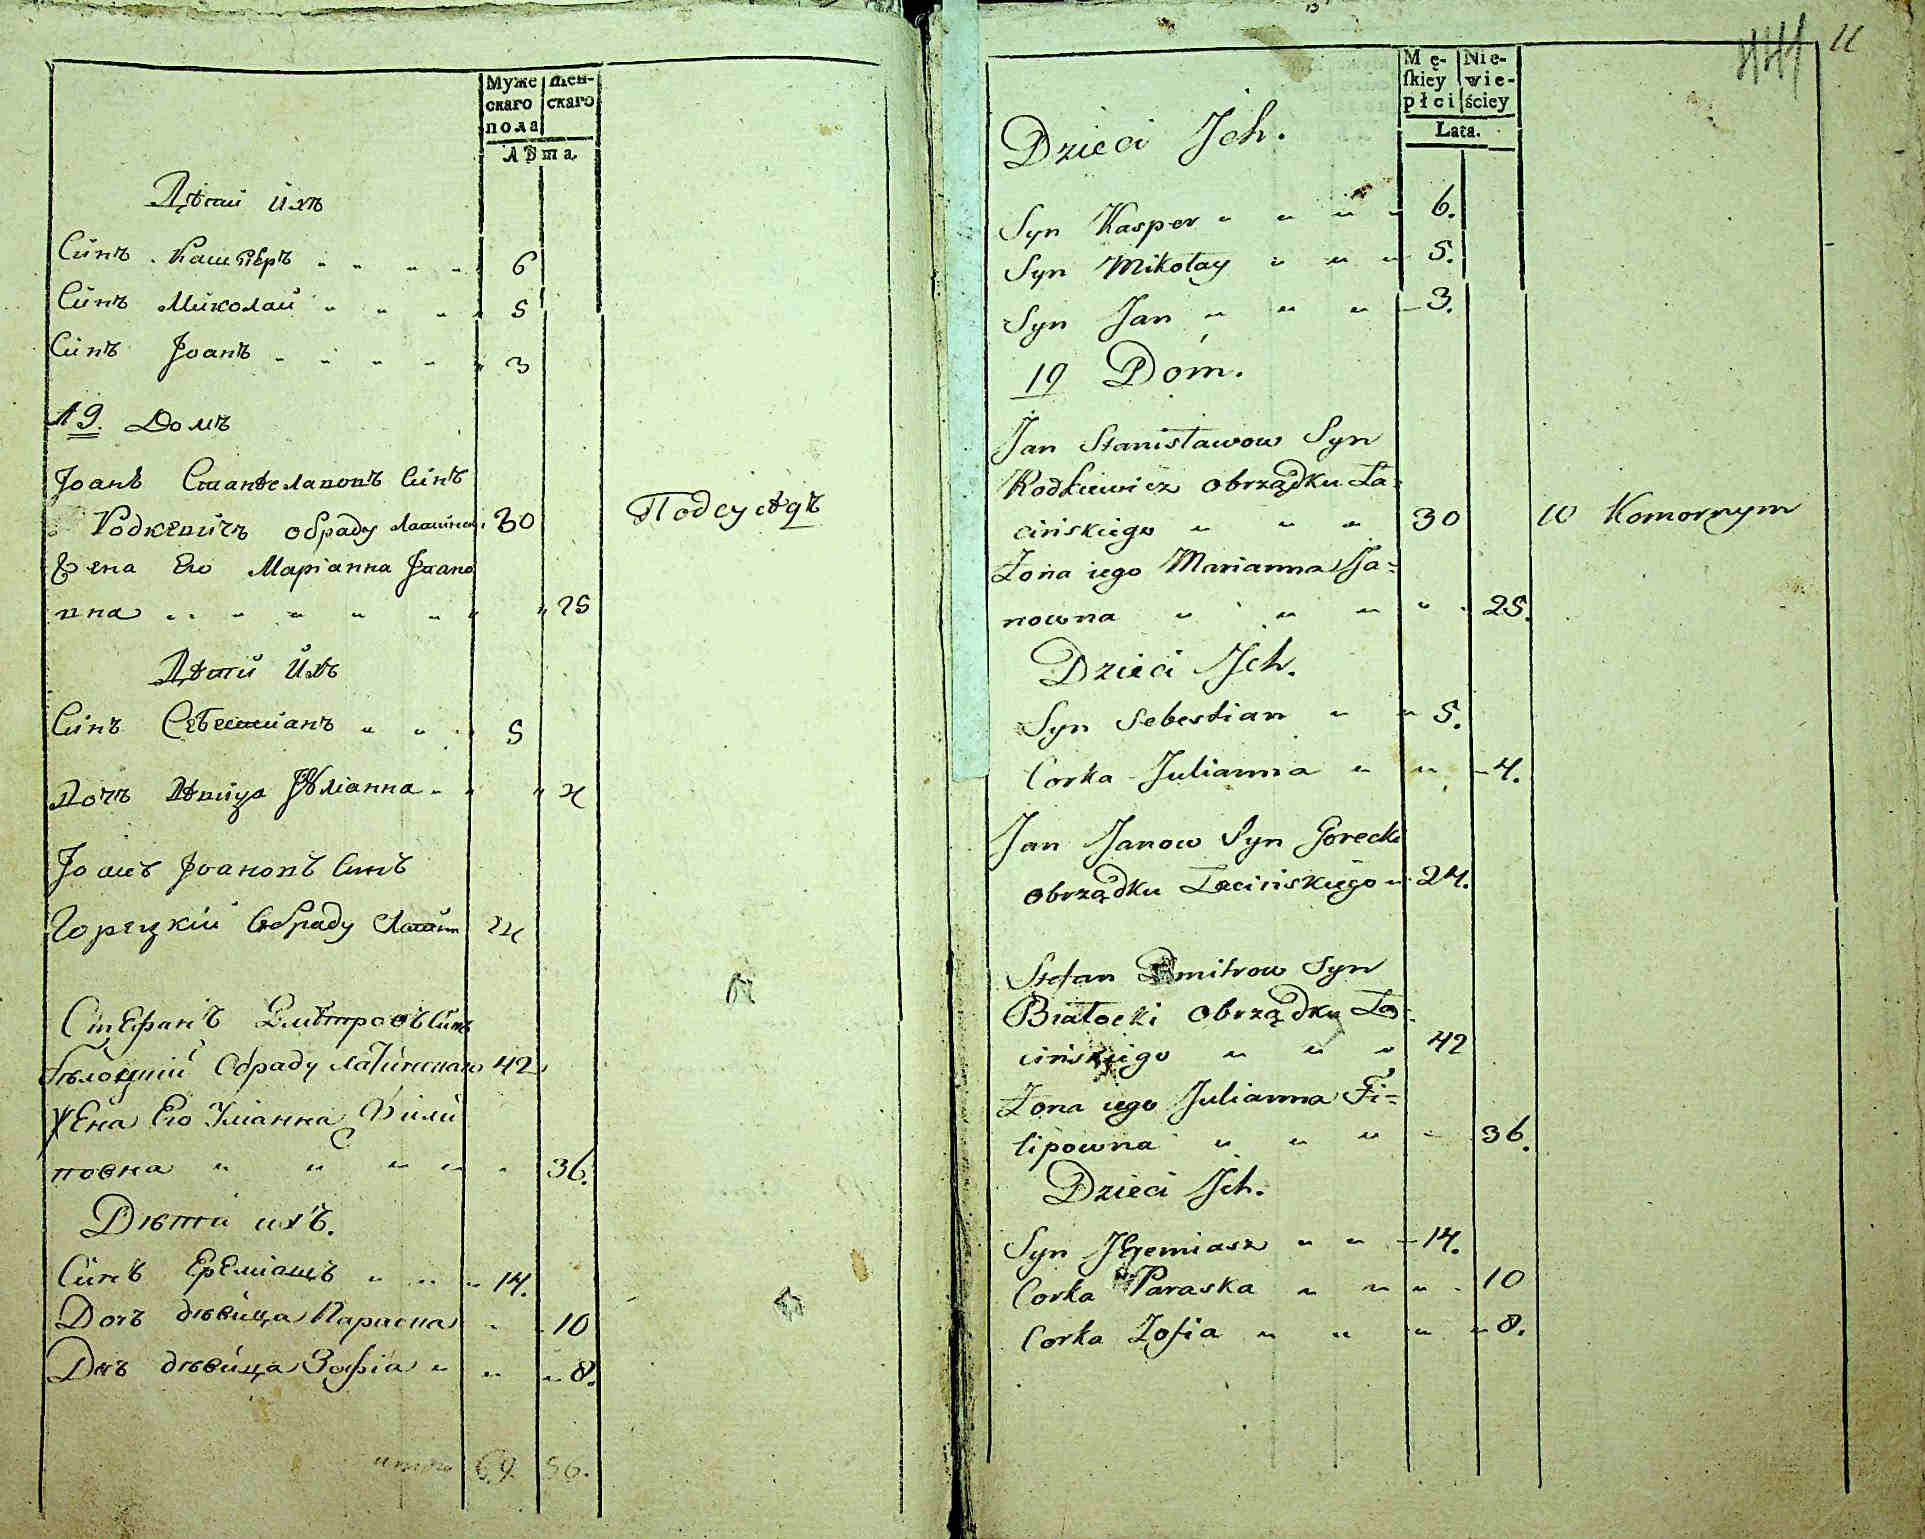 Муже
скаго
пола
Жен-
скаго
Лѣта.
Дѣтий ихъ
Синъ Кашперъ 6
Синъ Миколай 5
Синъ Іоанъ 3
19. Домъ
Іоанъ Станиславовъ Синъ
Родкевичъ обраду Латинск 30 Подсусѣдъ
Жена Его Маріанна Іоано
вна 25
Дѣтий Ихъ
Синъ Себестианъ 5
Дочъ дѣвица Юліанна 4
Іоанъ Іоановъ Синъ
Горецкій Обраду Латин 24
Стефанъ Дмитровъ Синъ
Бѣлоцкий Обраду Латинскаго 42
Жена Его Улианна Фили
повна 36.
Дѣти ихъ.
Синъ Ереміашъ 14.
Дочъ дѣвица Параска 10
Дчъ дѣвица Зофія 8.
итого 69. 56.
11
Mę-
skiey
płci
Nie-
wie-
ściey
Lata.
Dzieci Ich.
Syn Kasper 6.
Syn Mikołay 5.
Syn Jan 3.
19 Dom.
Jan Stanisławow Syn
Rodkiewicz obrządku Ła-
cińskiego 30 W Komornym
Żona iego Marianna Ja=
nowna 25.
Dzieci Ich.
Syn Sebestian 5.
Corka Julianna 4.
Jan Janow Syn Gorecki
obrządku Łacińskiego 24.
Stefan Dmitrow Syn
Białocki Obrządku Ła
cińskiego 42
Żona iego Julianna Fi=
lipowna 36.
Dzieci Ich.
Syn Jeremiasz 14.
Corka Paraska 10
Corka Zofia 8.